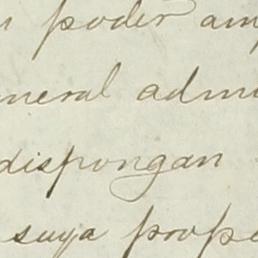 n poder am
neral admi
dispongan
suya prope